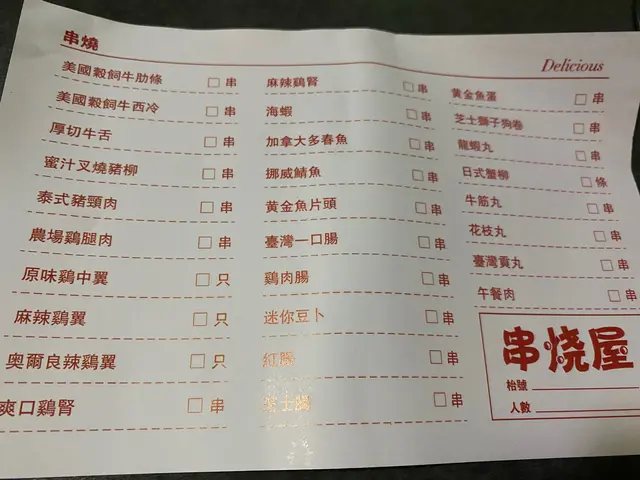 串燒
Delicious
美國穀飼牛肋條 □ 串
美國穀飼牛西冷 □ 串
厚切牛舌 □ 串
蜜汁叉燒豬柳 □ 串
泰式豬頸肉 □ 串
農場鷄腿肉 □ 串
原味鷄中翼 □ 只
麻辣鷄翼 □ 只
奧爾良辣鷄翼 □ 只
爽口鷄腎 □ 串
麻辣鷄腎 □ 串
海蝦 □ 串
加拿大多春魚 □ 串
挪威鯖魚 □ 串
黃金魚片頭 □ 串
臺灣一口腸 □ 串
鷄肉腸 □ 串
迷你豆卜 □ 串
紅腸 □ 串
芝士腸 □ 串
黃金魚蛋 □ 串
芝士獅子狗卷 □ 串
龍蝦丸 □ 串
日式蟹柳 □ 條
牛筋丸 □ 串
花枝丸 □ 串
臺灣貢丸 □ 串
午餐肉 □ 串
串烧屋
枱號
人數